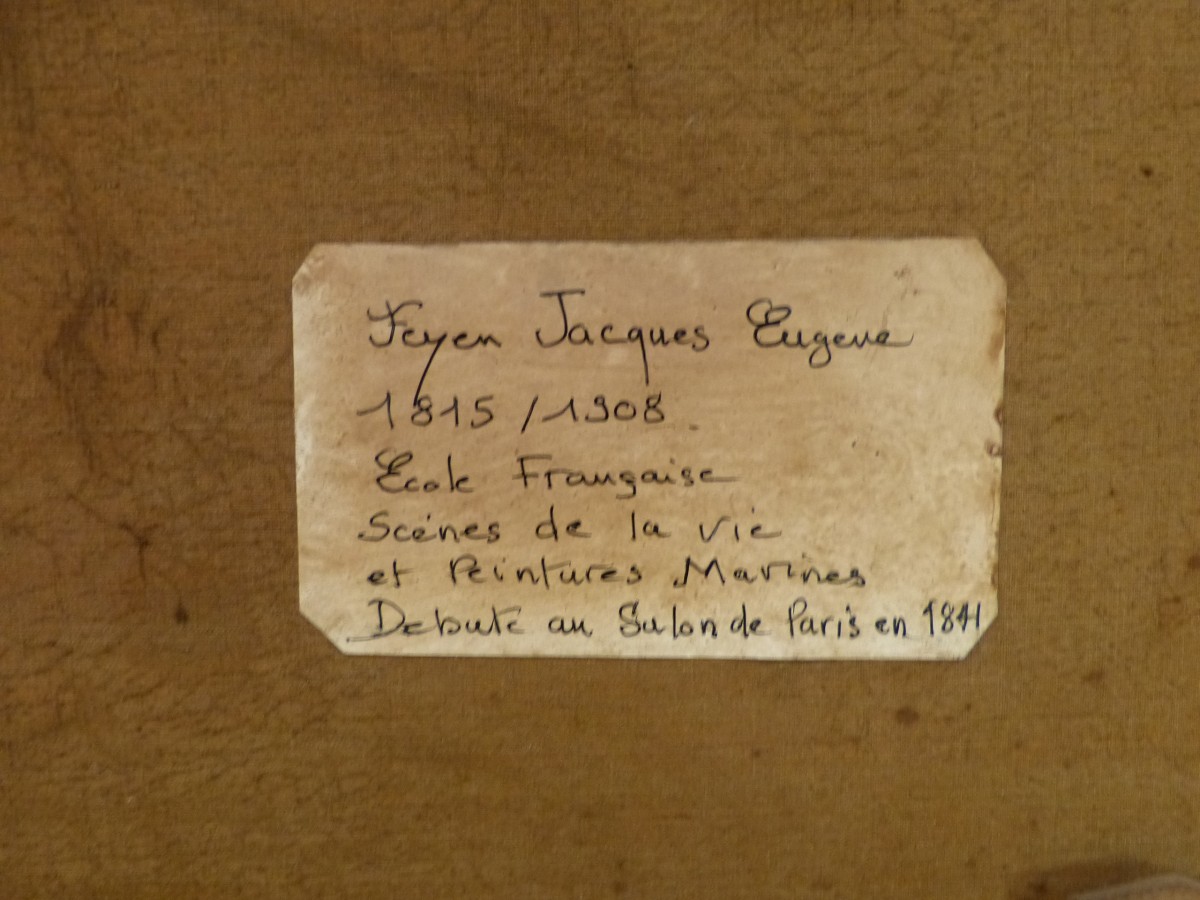 Feyen Jacques Eugene
1815 / 1908
Ecole Française
Scénes de la vie
et Peintures Marines
Debute au Salon de Paris en 1841